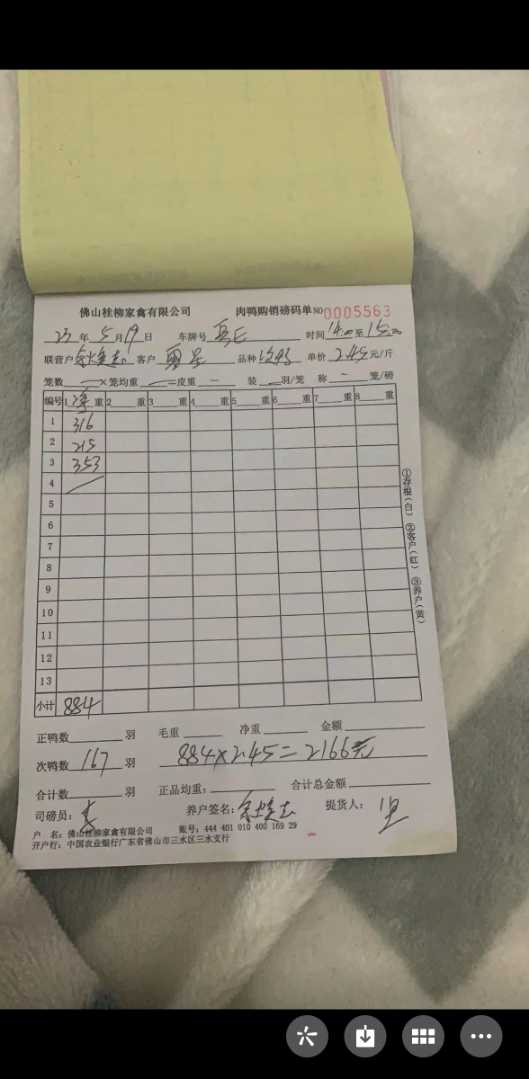 佛山桂柳家禽有限公司 肉鸭购销磅码单 NO 0005563
23年5月19日 车牌号 时间14:00至15:00
联营户 客户 品种次鸭 单价2.45元/斤
笼数 一 ×笼均重 一 =皮重 一 装 一 羽/笼 称 一 笼/磅
编号 1净重 2 重 3 重 4 重 5 重 6 重 7 重 8 重
1 316
2 215
3 353
4
5
6
7
8
9
10
11
12
13
小计 884
①存根(白) ②客户(红) ③养户(黄)
正鸭数 羽 毛重 净重 金额
次鸭数 167 羽 884×2.45=2166元
合计数 羽 正品均重: 合计总金额
司磅员: 养户签名: 提货人:
户 名: 佛山桂柳家禽有限公司 账号: 444 401 010 400 169 29
开户行: 中国农业银行广东省佛山市三水区三水支行